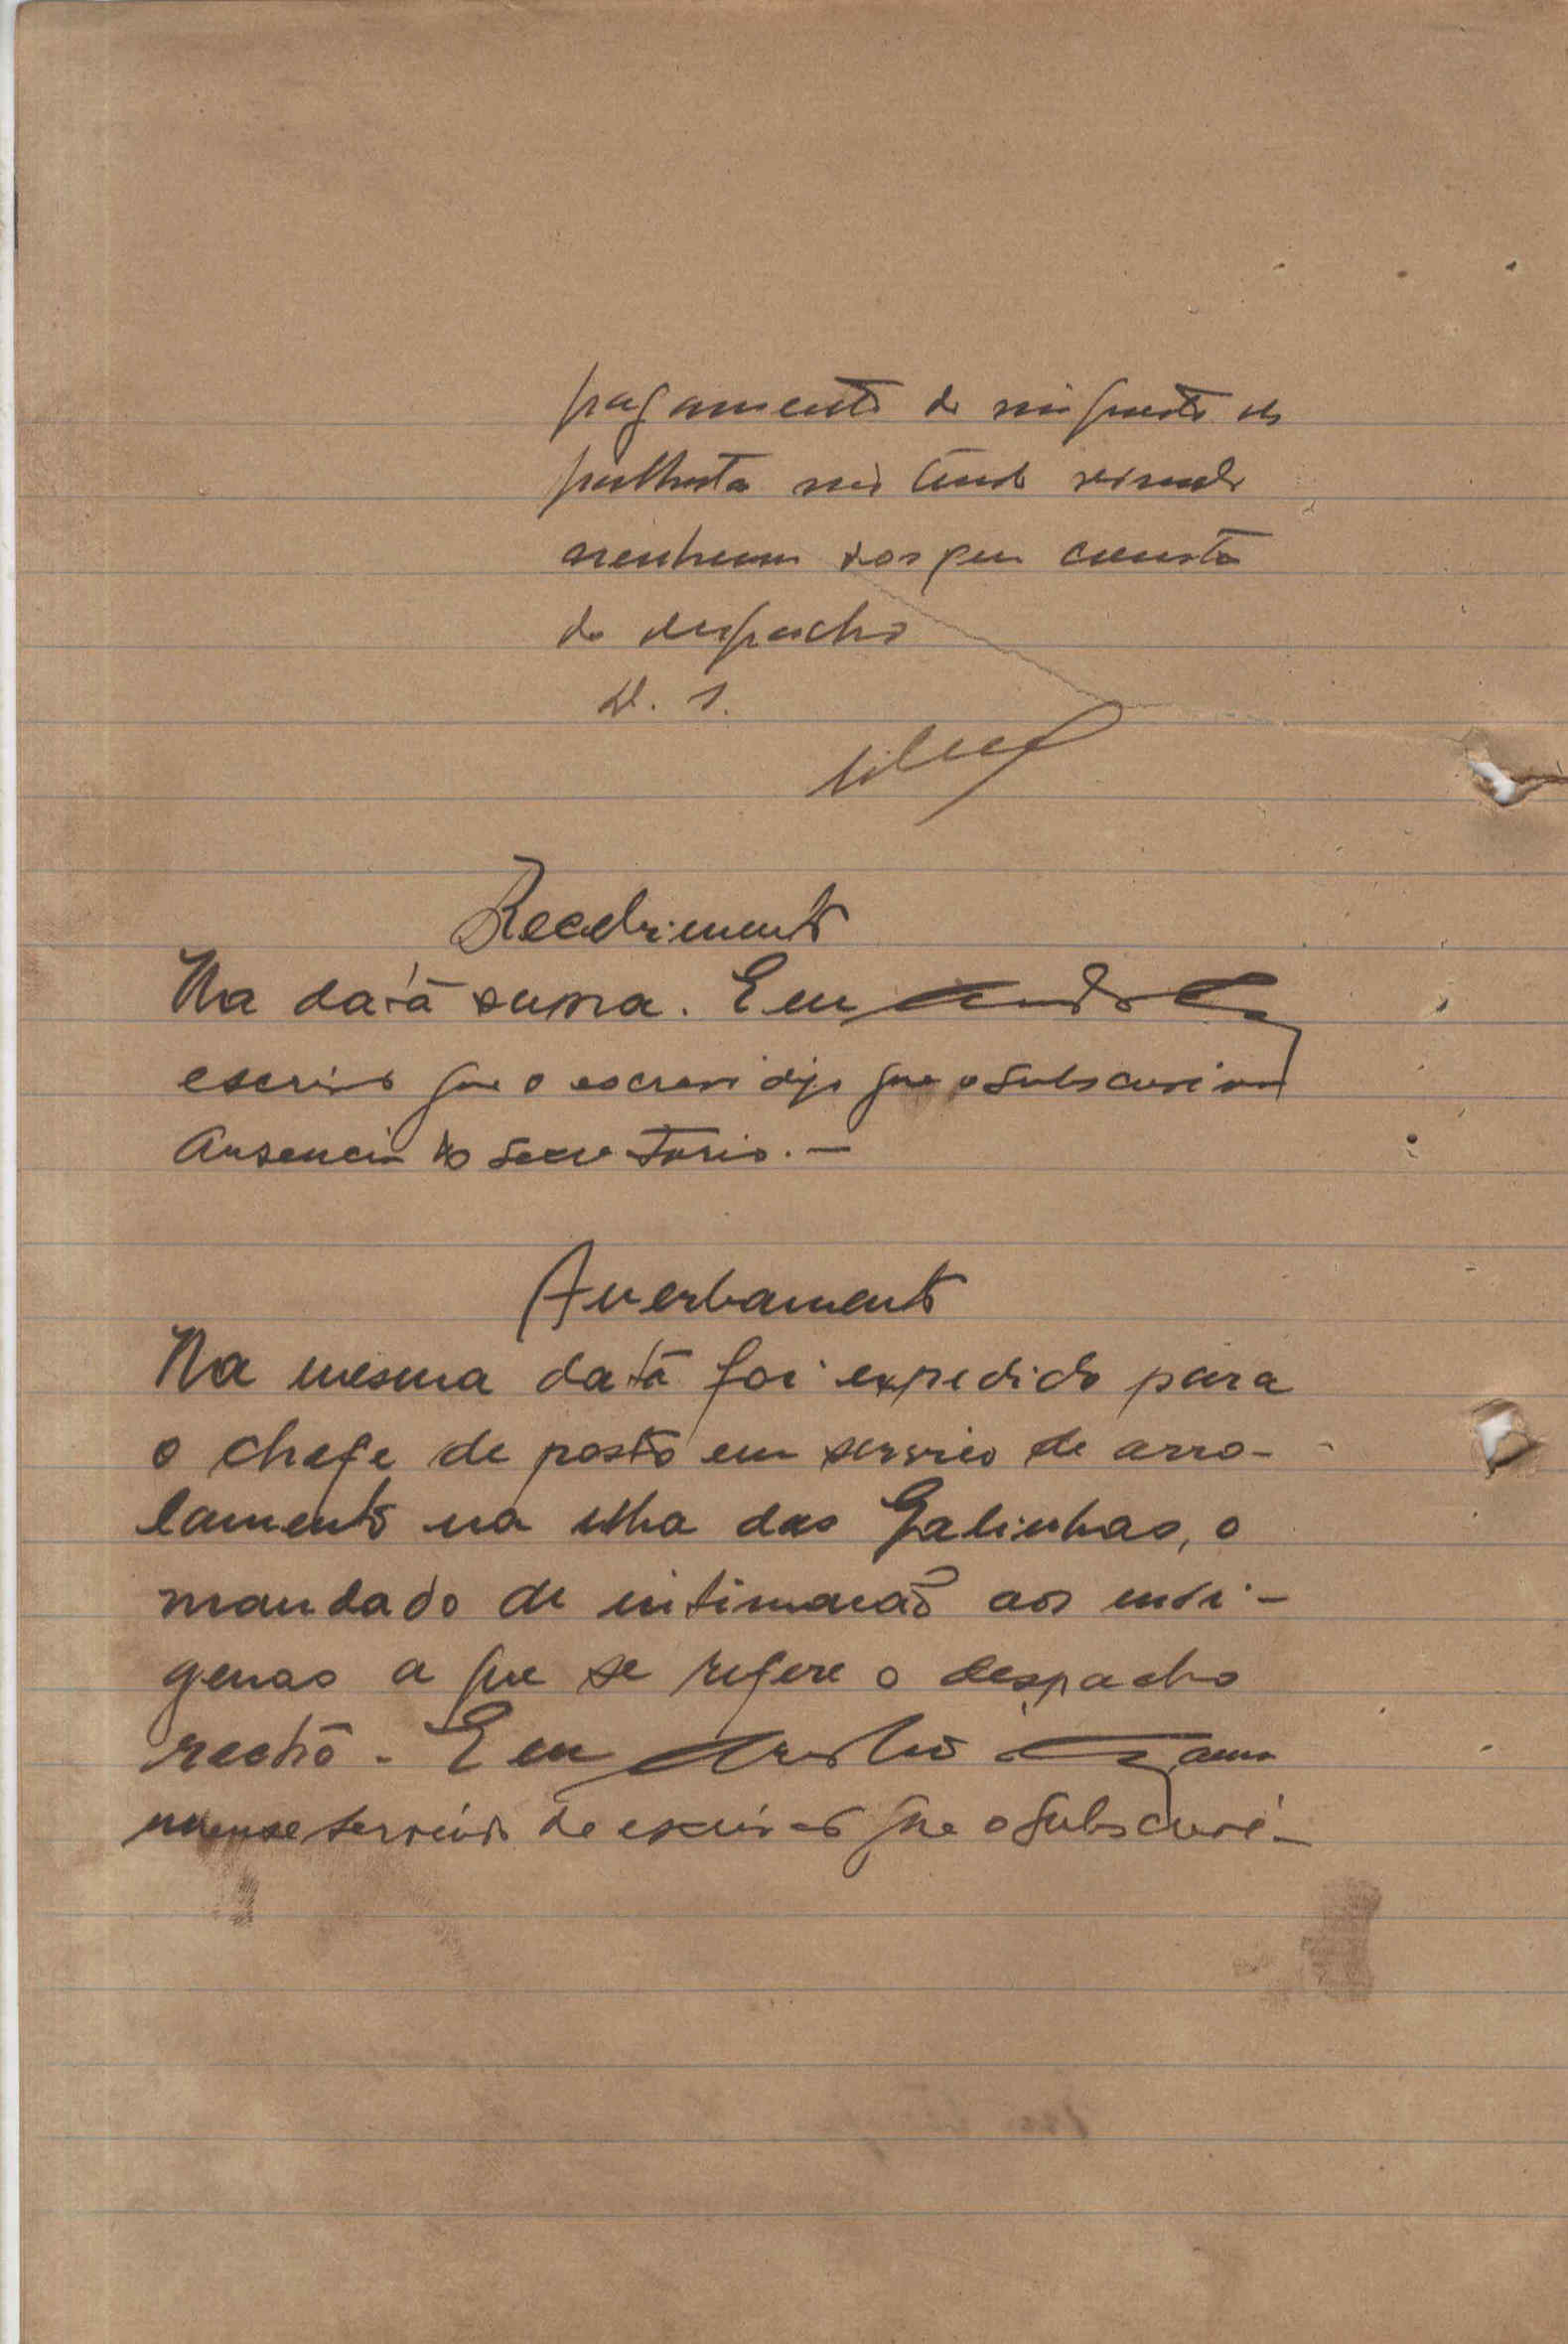 pagamento do imposto de
palhota não tendo vindo
nenhum dos que consta
do despacho
D. S.
Recebimento
Na data supra. E eu
escrivão que o escrevi digo que o subscrevi na
Ausencia do secretario. —
Averbamento
Na mesma data foi expedido para
o chefe de posto em serviço de arro-
lamento na ilha das Galinhas, o
mandado de intimação aos indi-
genas a que se refere o despacho
recto - E eu
servindo de escrivão que o subscrevi -